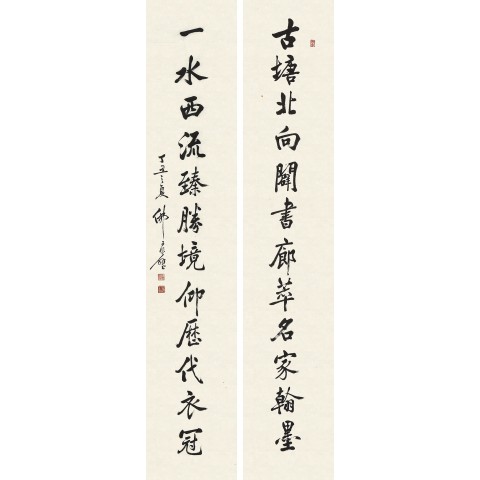 古塘北向闢書廊萃名家翰墨
一水西流臻勝境仰歷代衣冠
丁丑夏佛